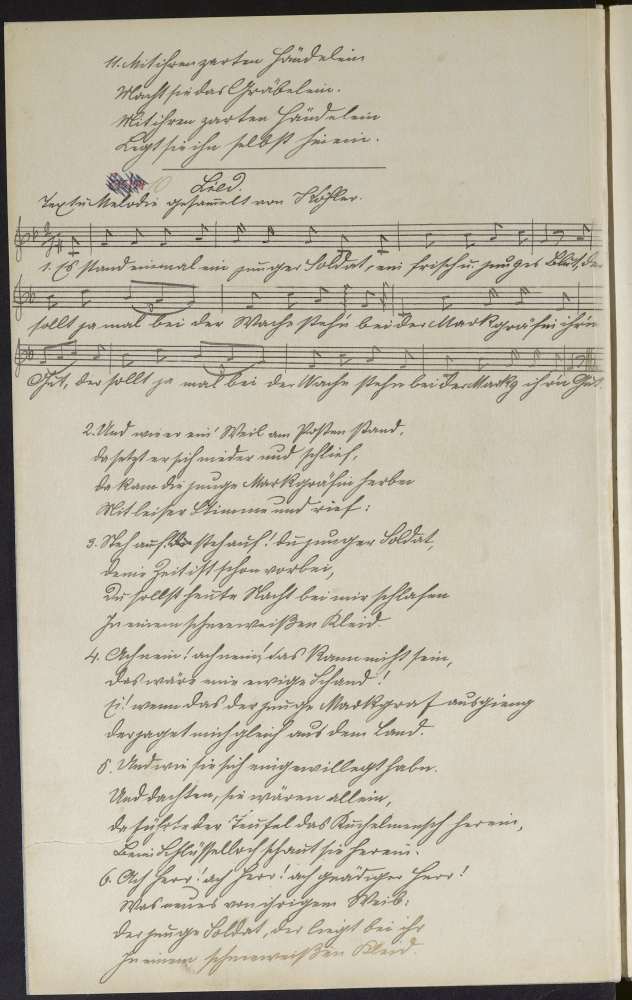 11. Mit ihren zarten Händelein
Macht sie das Gräbelein.
Mit ihren zarten Händelein
Legt sie ihn selbst hinein.
Lied.
Text u. Melodie gesam̄elt von Köhler.
1. Es stand einmal ein junger Soldat, ein frisch u. junges Blut, der
sollt ja mal bei der Wache stehn bei der Markgräfin ihr'n
Gut, der sollt ja mal bei der Wache stehn bei der Markg ihr'n Gut.
2. Und wie er ein' Weil am Posten stand,
da setzt er sich nieder und schlief,
da kam die junge Markgräfin herbei
Mit leiser Stimme und rief:
3. Steh auf! steh auf! du junger Soldat,
deine Zeit ist schon vorbei,
Du sollst heute Nacht bei mir schlafen
In einem schneeweißen Kleid.
4. Ach nein! ach nein! das kann nicht sein,
das wäre eine ewige Schand!
Ei! wenn das der junge Markgraf ausgieng
der jaget mich gleich aus dem Land.
5. Und wie sie sich eingewilligt habn.
Und dachten, sie wären allein,
da führte der Teufel das Kuchelmensch herein,
Beim Schlüsselloch schaut sie herein.
6. Ach Herr! ach Herr! ach gnädiger Herr!
Was neues von ihrigem Weib:
der junge Soldat, der liegt bei ihr
In einem schneeweißen Kleid.